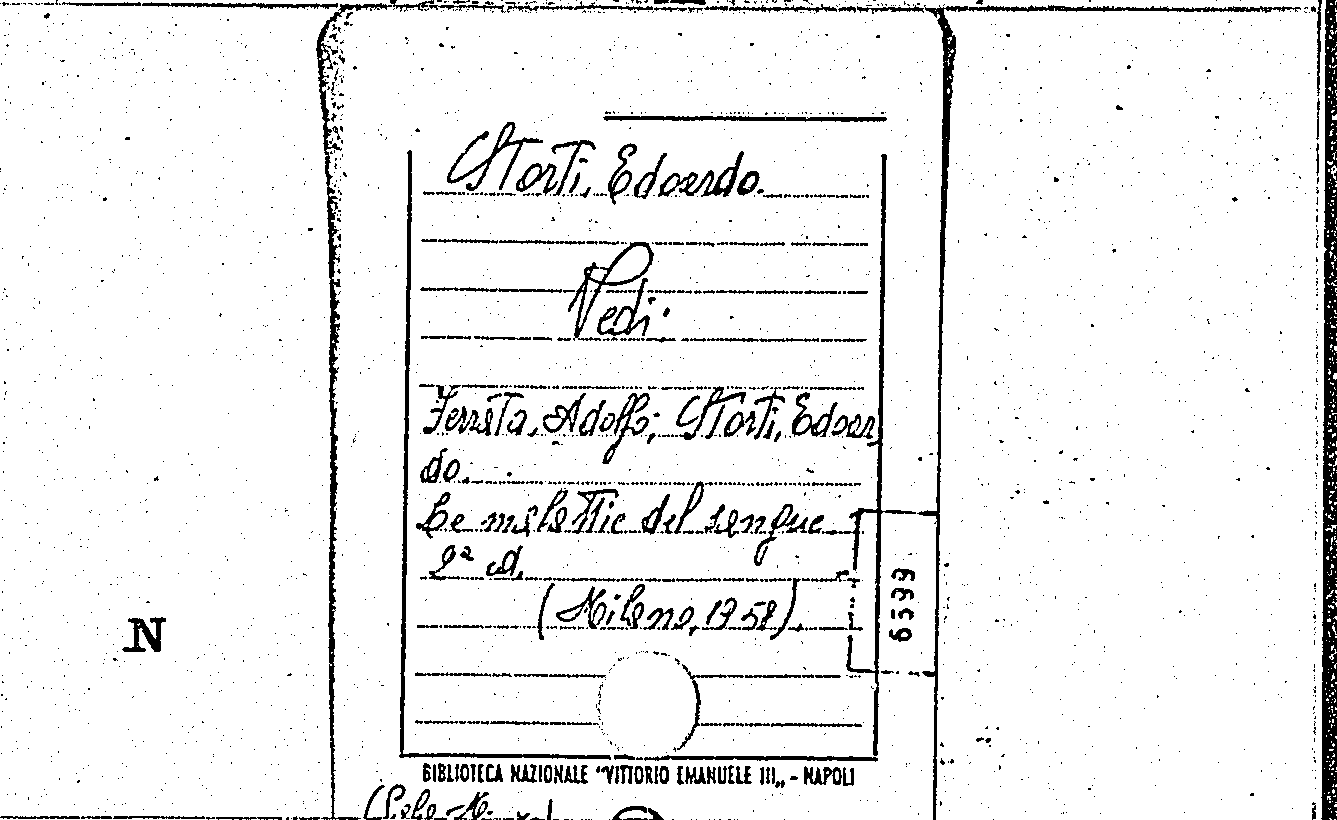 Storti, Edoardo.
Vedi:
Ferrata, Adolfo; Storti, Edoar,
do.
Le malattie del sangue
2ª ed.
(Milano, 1958).
6599
N
BIBLIOTECA NAZIONALE "VITTORIO EMANUELE III„ - NAPOLI